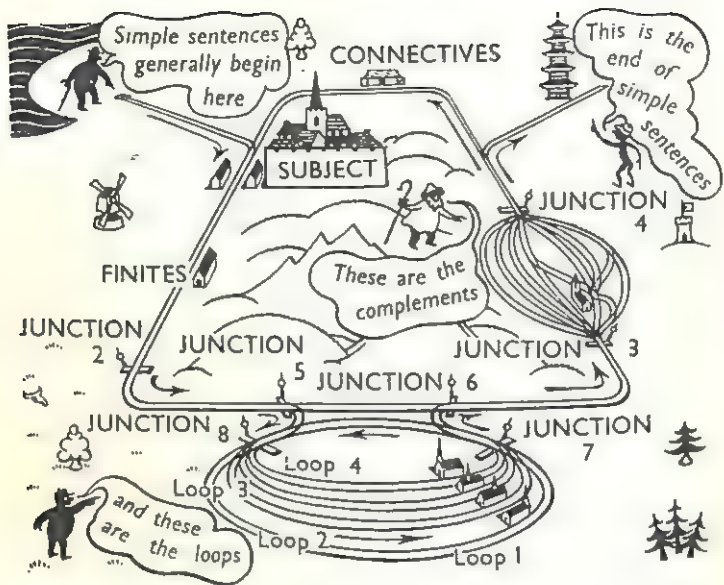 Simple sentences
generally begin
here
CONNECTIVES
This is the
end of
simple
sentences
SUBJECT
JUNCTION
4
These are the
complements
FINITES
JUNCTION
2
JUNCTION
5
JUNCTION
6
JUNCTION
3
JUNCTION
8
JUNCTION
7
Loop 4
Loop 3
Loop 2
Loop 1
and these
are the loops